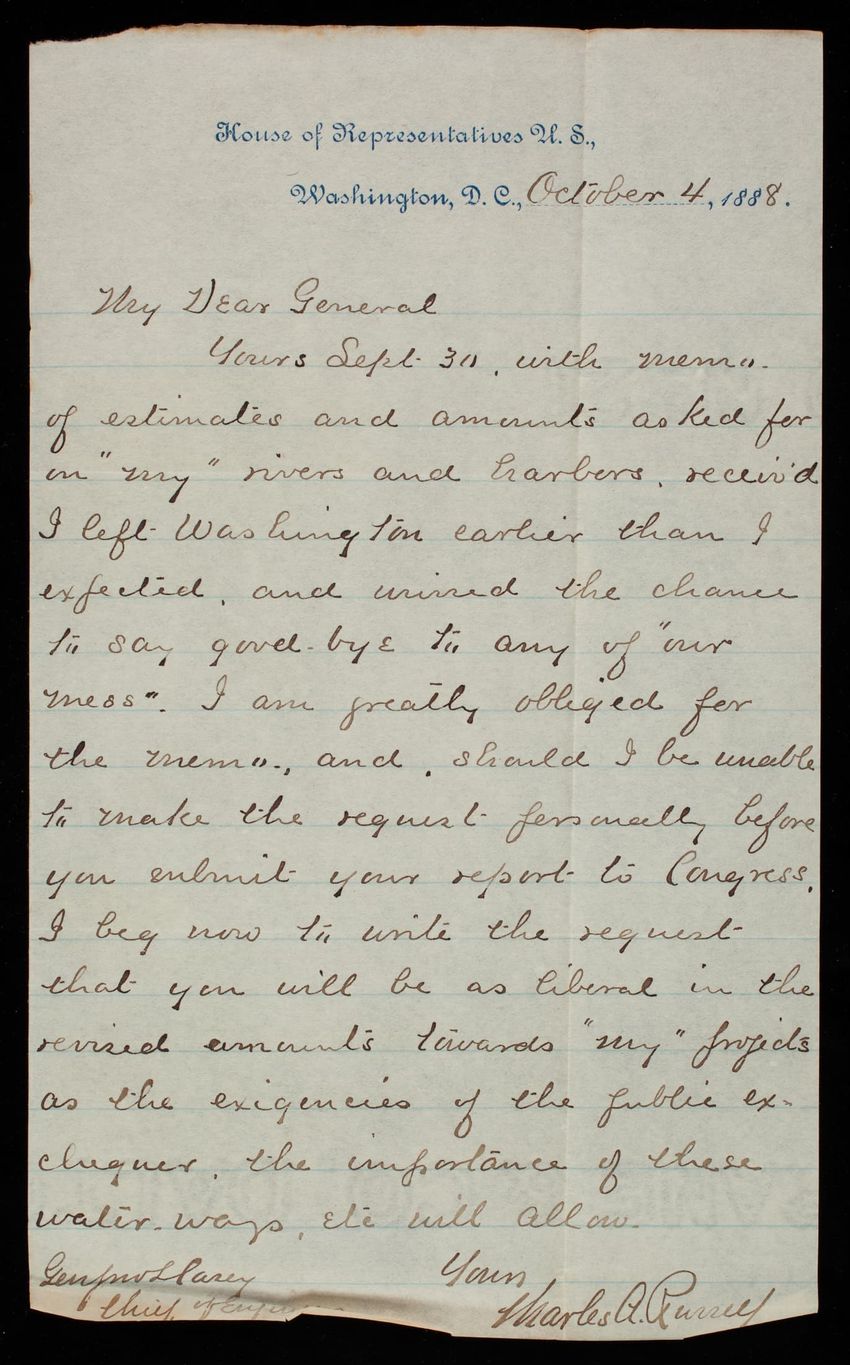 House of Representatives U. S.,
Washington, D. C., October 4, 1888.
My Dear General
Yours Sept 30, with memo.
of estimates and amounts asked for
on "my" rivers and harbors, receiv'd
I left Washington earlier than I
expected, and missed the chance
to say good-bye to any of "our
mess". I am greatly obliged for
the memo., and, should I be unable
to make the request personally before
you submit your report to Congress,
I beg now to write the request
that you will be as liberal in the
revised amounts towards "my" projects
as the exigencies of the public ex-
chequer, the importance of these
water-ways, etc will allow.
Yours
Charles A. Russell
Gen Jno L Casey
Chief of Engineers